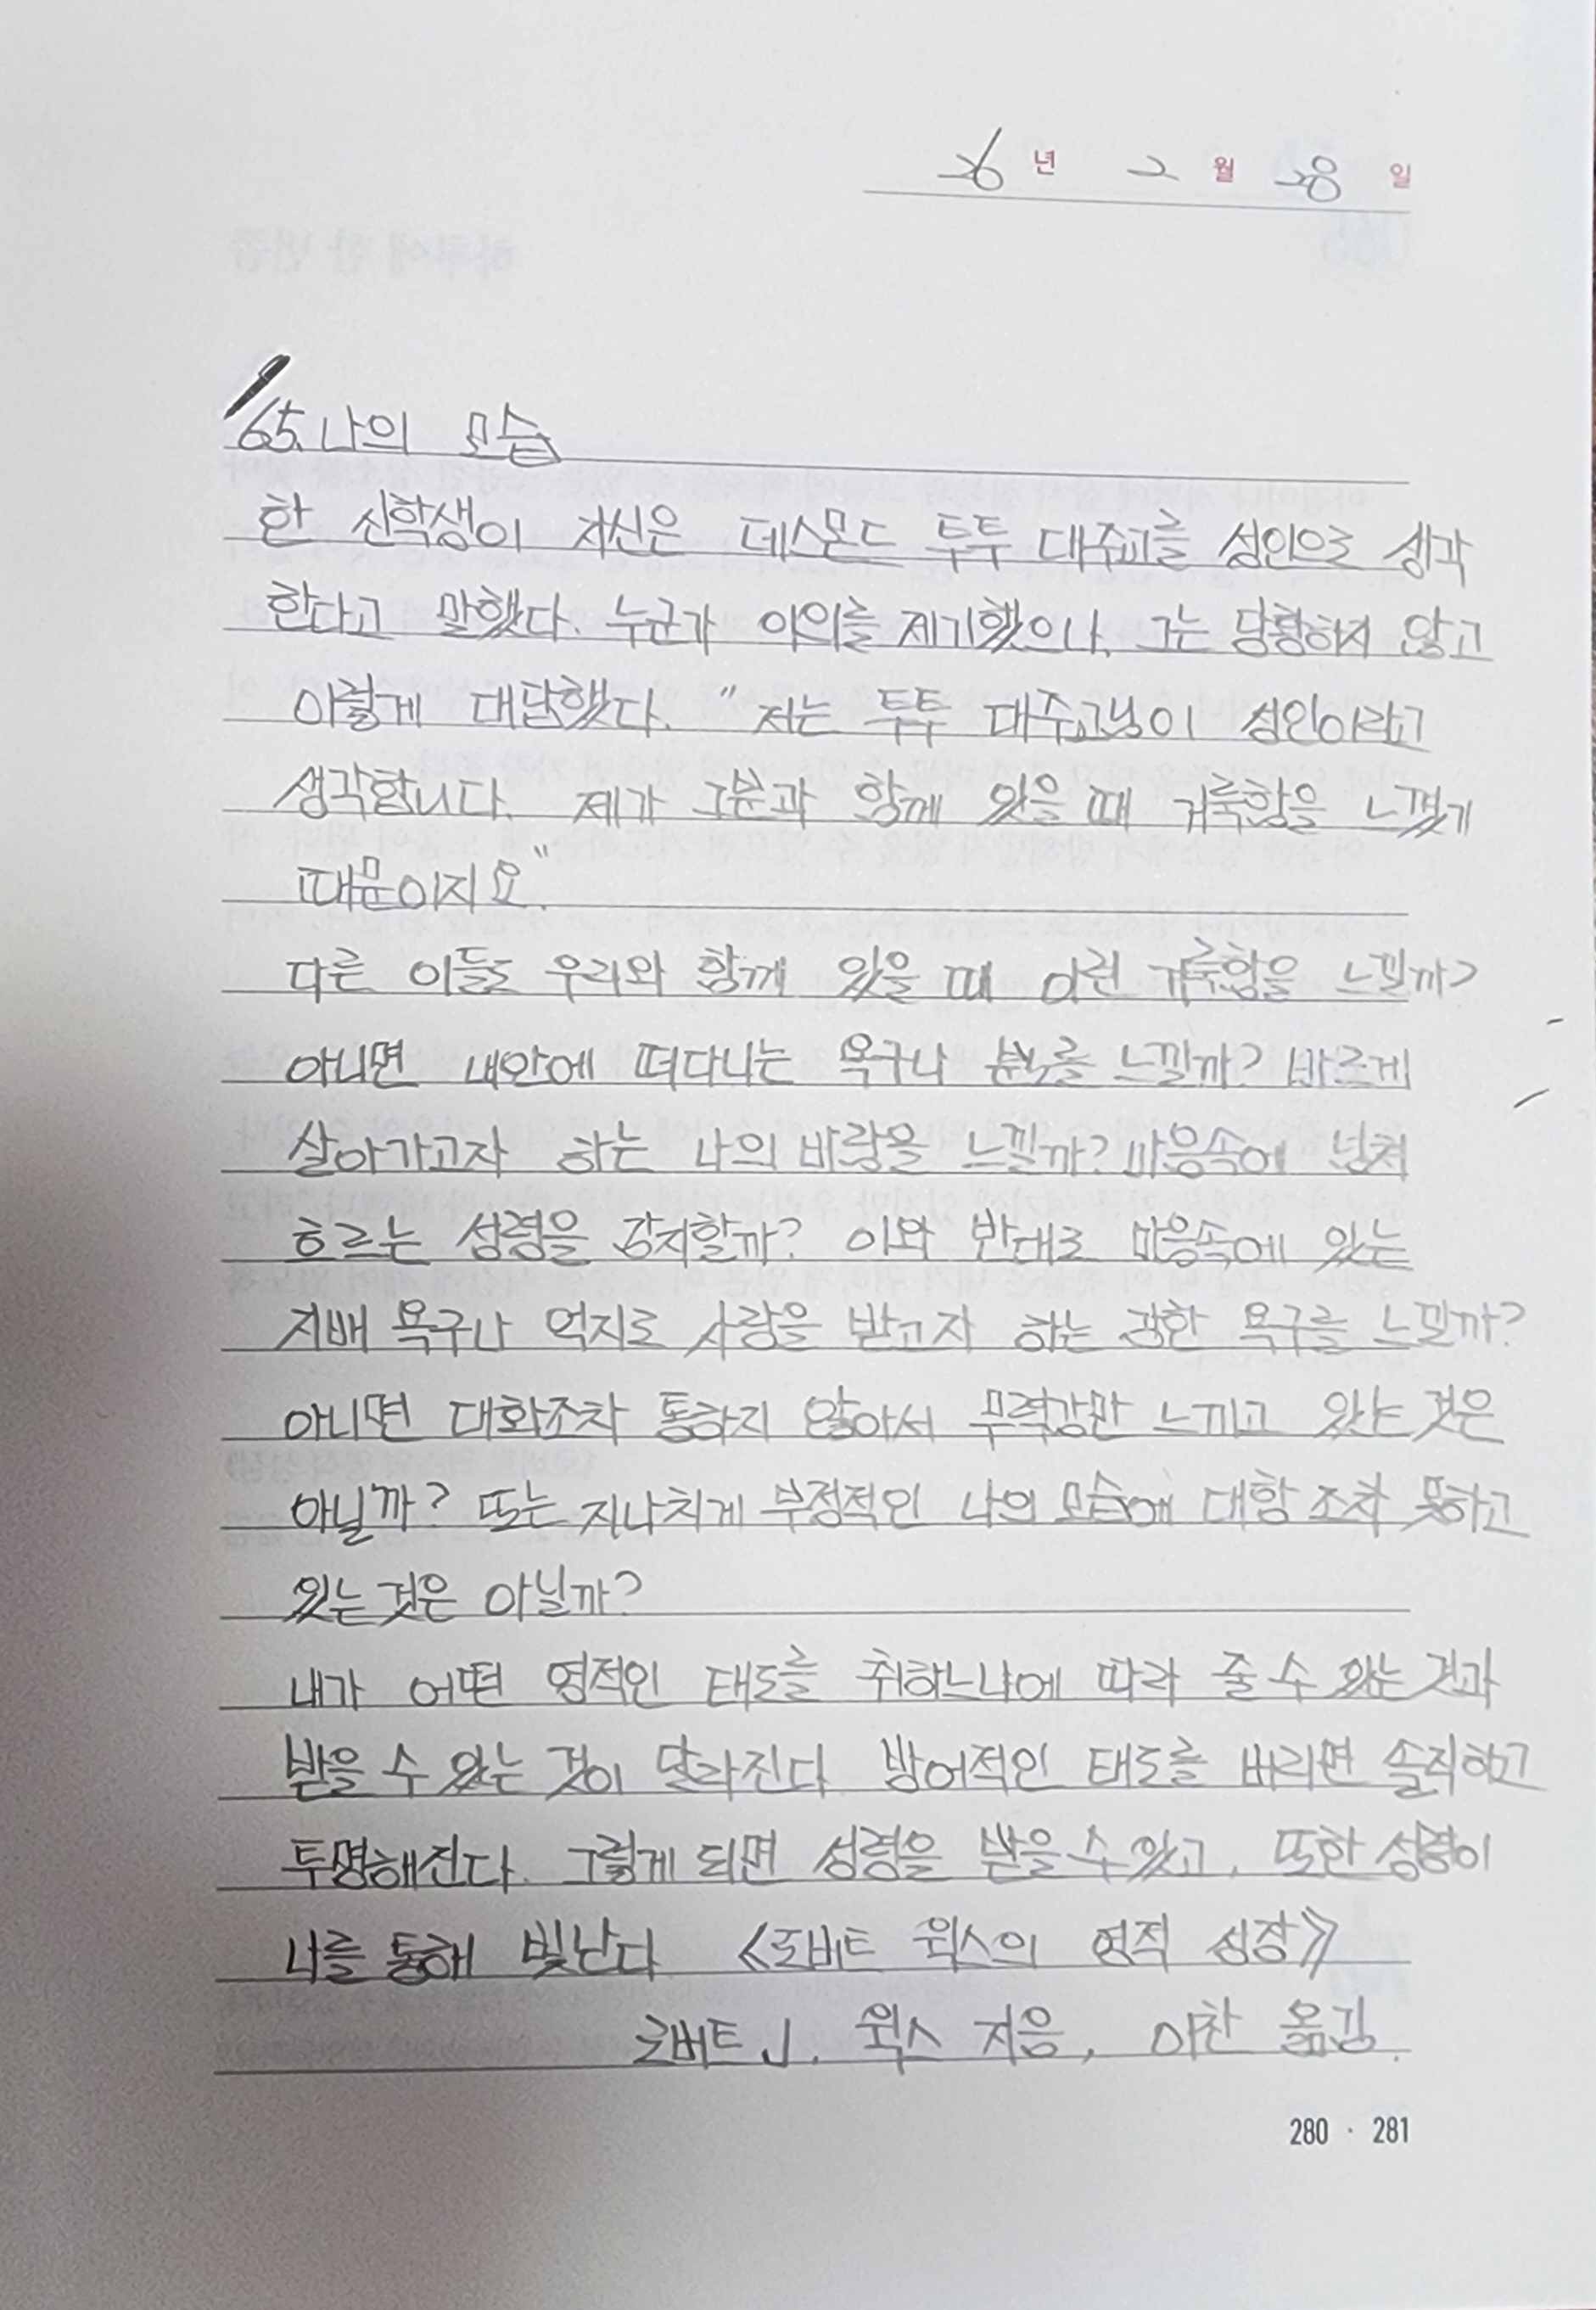 26 년 2 월 28 일
65. 나의 모습
한 신학생이 자신은 데스몬드 투투 대주교를 성인으로 생각
한다고 말했다. 누군가 이의를 제기했으나, 그는 당황하지 않고
이렇게 대답했다. "저는 투투 대주교님이 성인이라고
생각합니다. 제가 그분과 함께 있을 때 거룩함을 느꼈기
때문이지요."
다른 이들도 우리와 함께 있을 때 이런 거룩함을 느낄까?
아니면 내안에 떠다니는 욕구나 분노를 느낄까? 바르게
살아가고자 하는 나의 바람을 느낄까? 마음속에 넘쳐
흐르는 성령을 감지할까? 이와 반대로 마음속에 있는
지배 욕구나 억지로 사랑을 받고자 하는 강한 욕구를 느낄까?
아니면 대화조차 통하지 않아서 무력감만 느끼고 있는 것은
아닐까? 또는 지나치게 부정적인 나의 모습에 대항조차 못하고
있는 것은 아닐까?
내가 어떤 영적인 태도를 취하느냐에 따라 줄 수 있는 것과
받을 수 있는 것이 달라진다 방어적인 태도를 버리면 솔직하고
투명해진다. 그렇게 되면 성령을 받을 수 있고, 또한 성령이
나를 통해 빛난다 《로버트 윅스의 영적 성장》
로버트 J. 윅스 지음, 이찬 옮김.
280 · 281